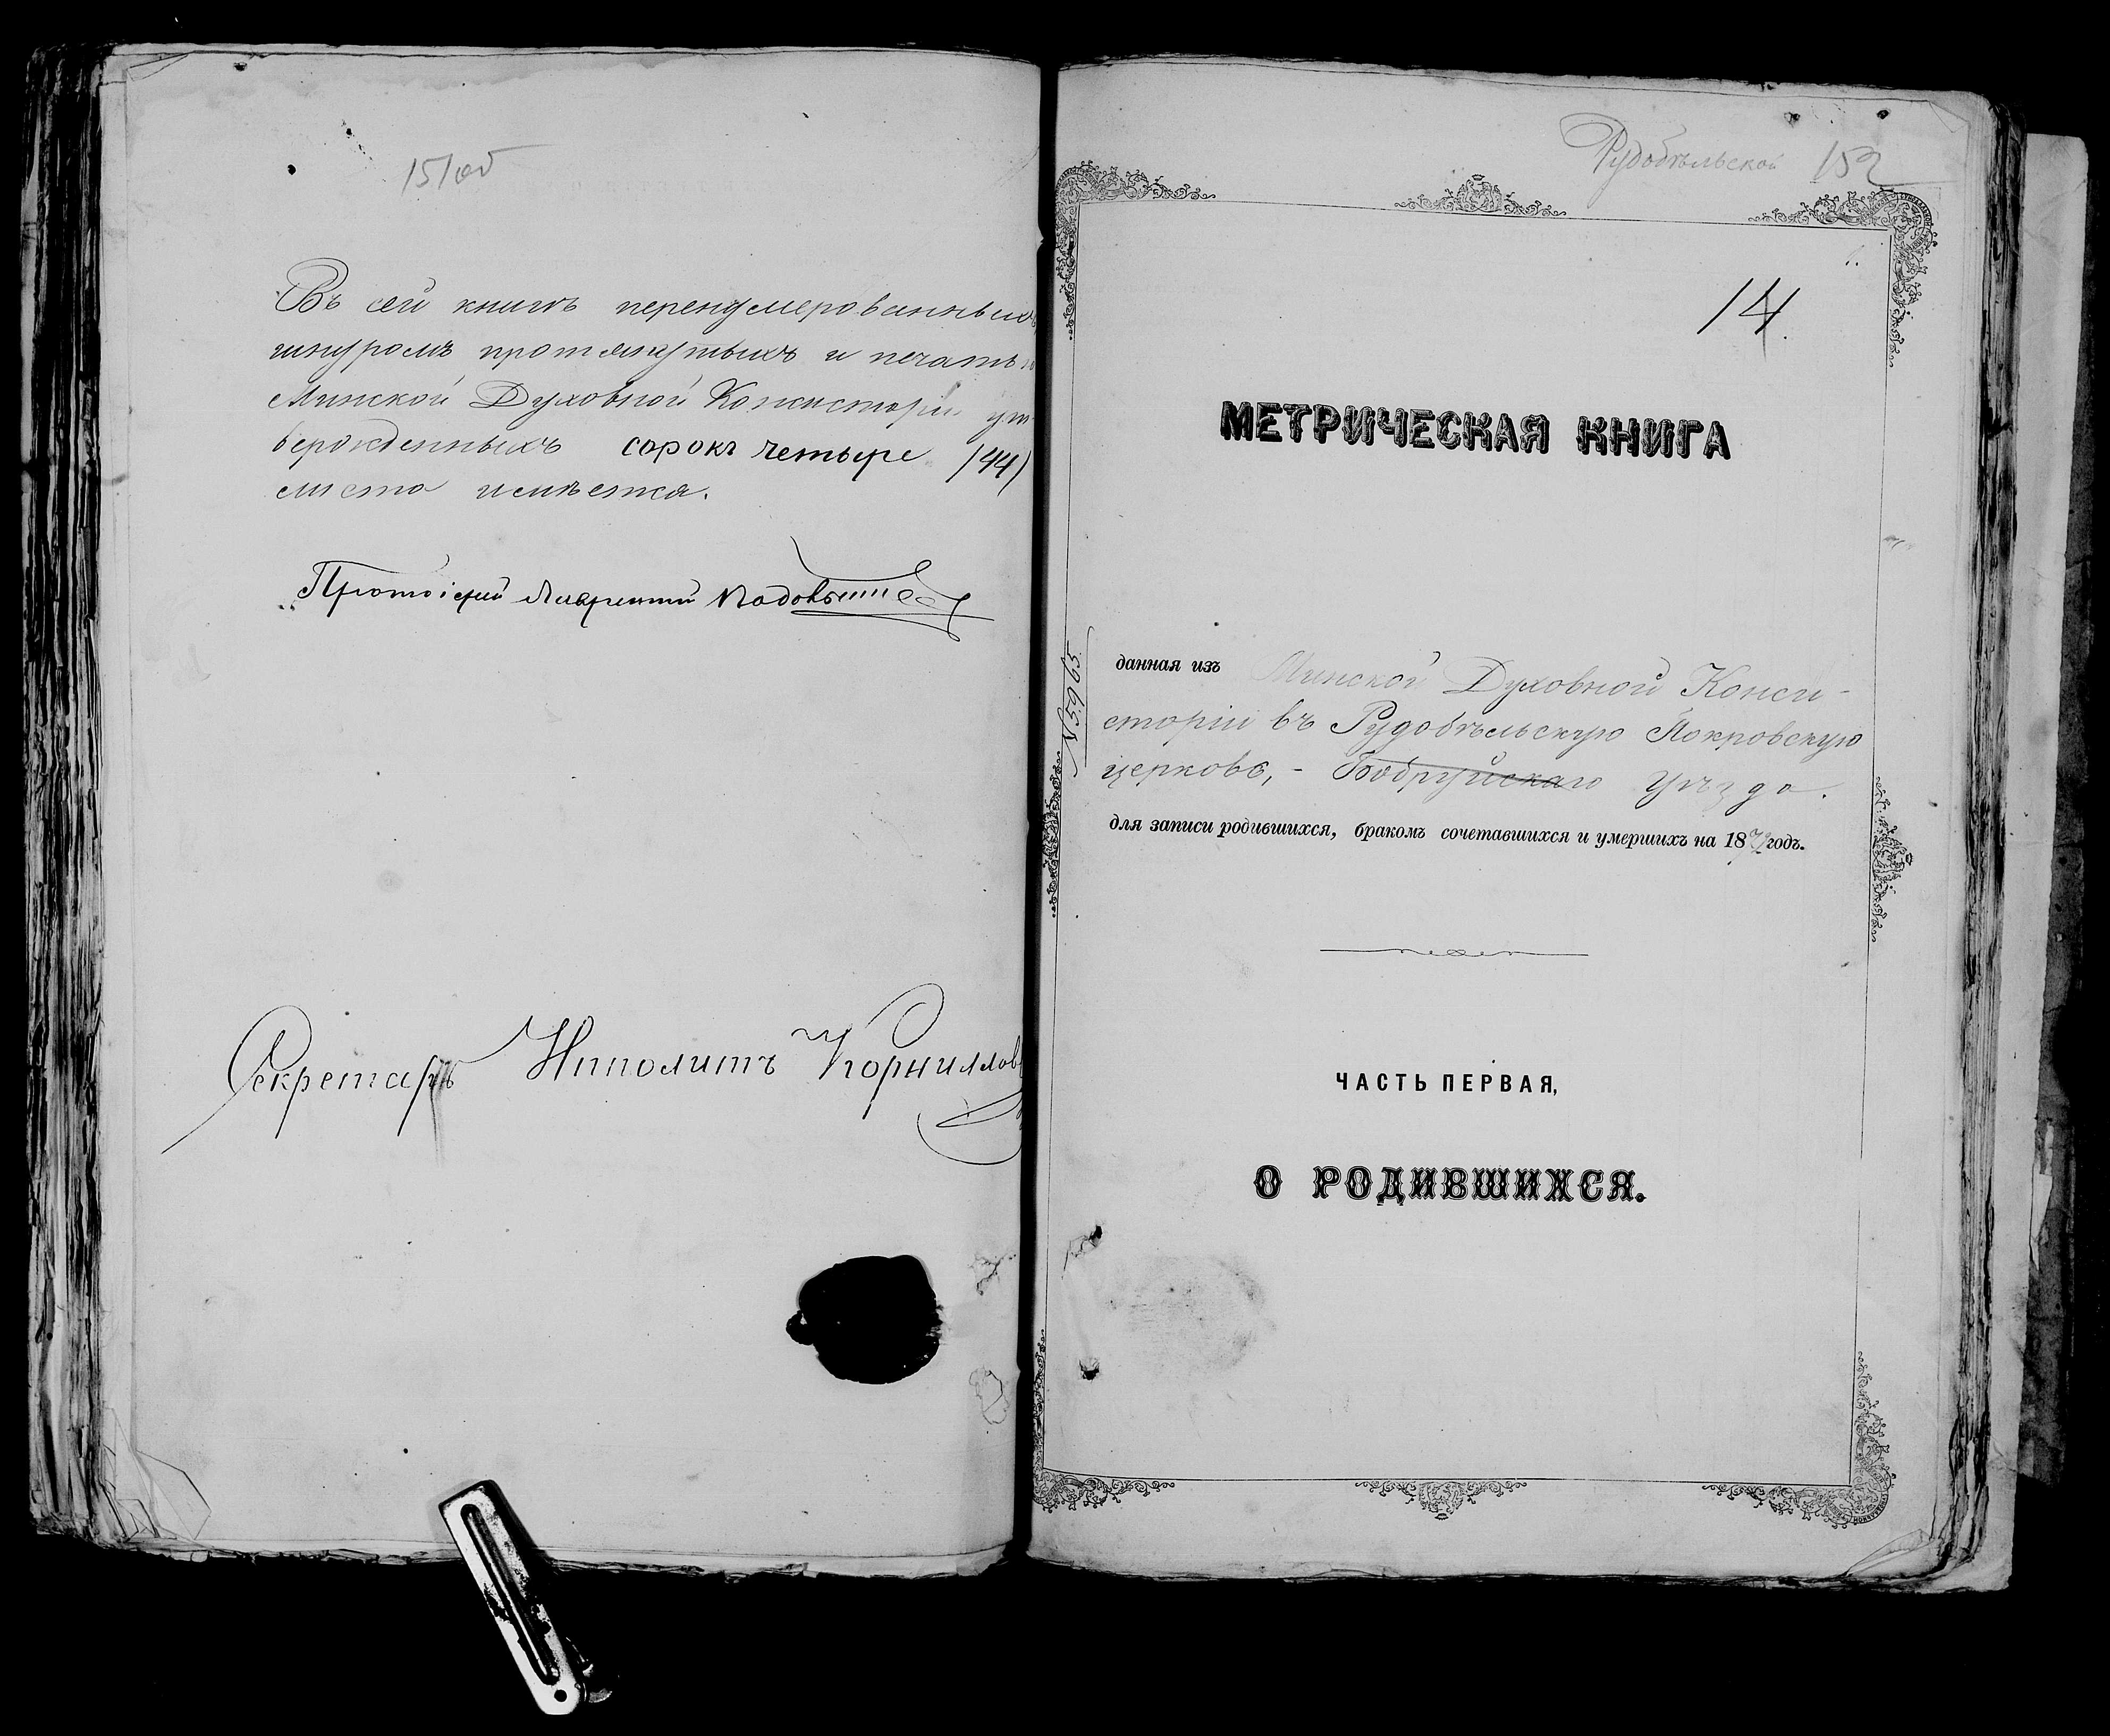 151об
Въ сей книгѣ перенумерованныхъ
шнуромъ протянутыхъ и печатью
Минской Духовной Консисторіи ут
вержденныхъ сорокъ четыре /44/
листа имѣется.
Протоіерей Лаврентій
Секретарь Ипполитъ Корнилов
Рудобѣльской 152
14.
МЕТРИЧЕСКАЯ КНИГА
№ 5965.
данная изъ Минской Духовной Конси-
сторіи въ Рудобѣльскую Покровскую
церковь, - Бобруйскаго уѣзда.
для записи родившихся, бракомъ сочетавшихся и умершихъ на 18 годъ.
ЧАСТЬ ПЕРВАЯ,
О РОДИВШИХСЯ.